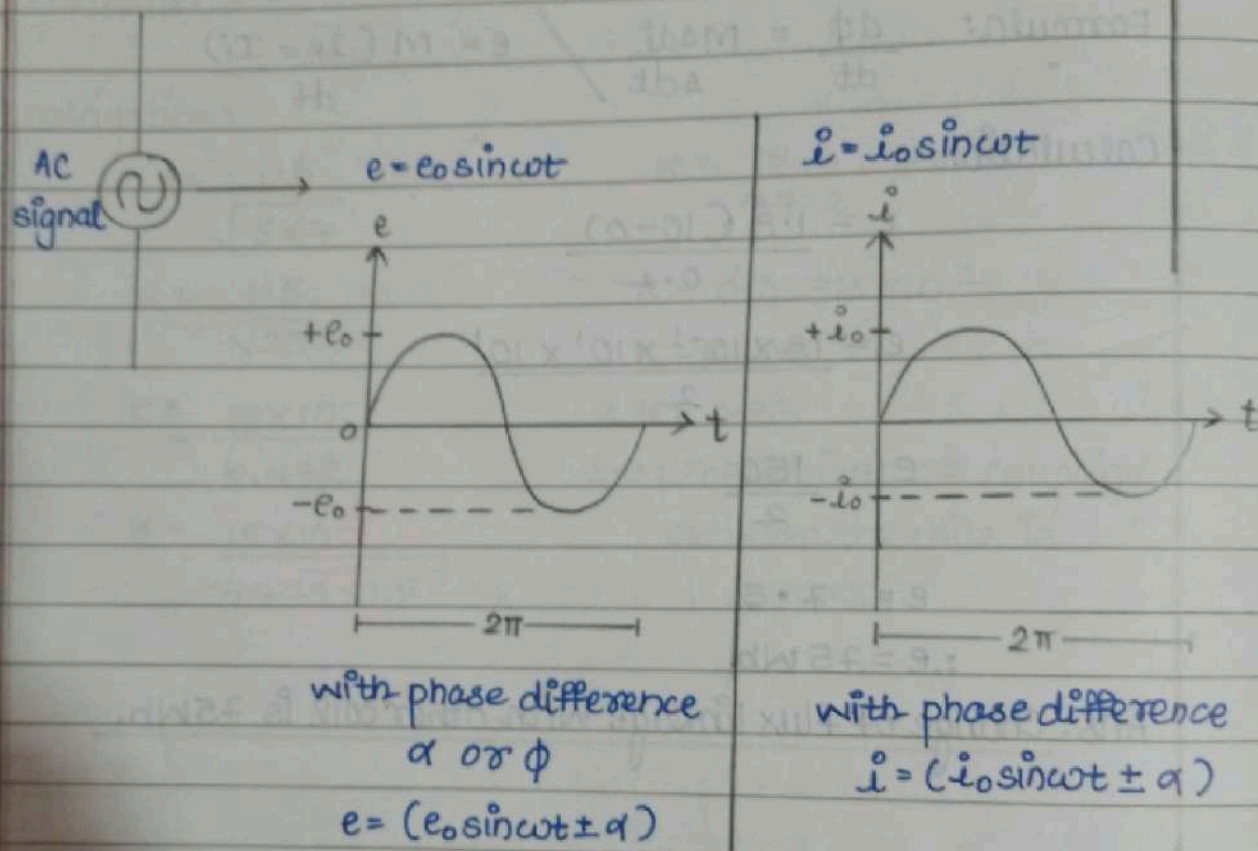 AC
signal
e = e₀sinωt
e
+e₀
0
t
-e₀
2π
with phase difference
α or ϕ
e = (e₀sinωt ± α)
i = i₀sinωt
i
+i₀
t
-i₀
2π
with phase difference
i = (i₀sinωt ± α)